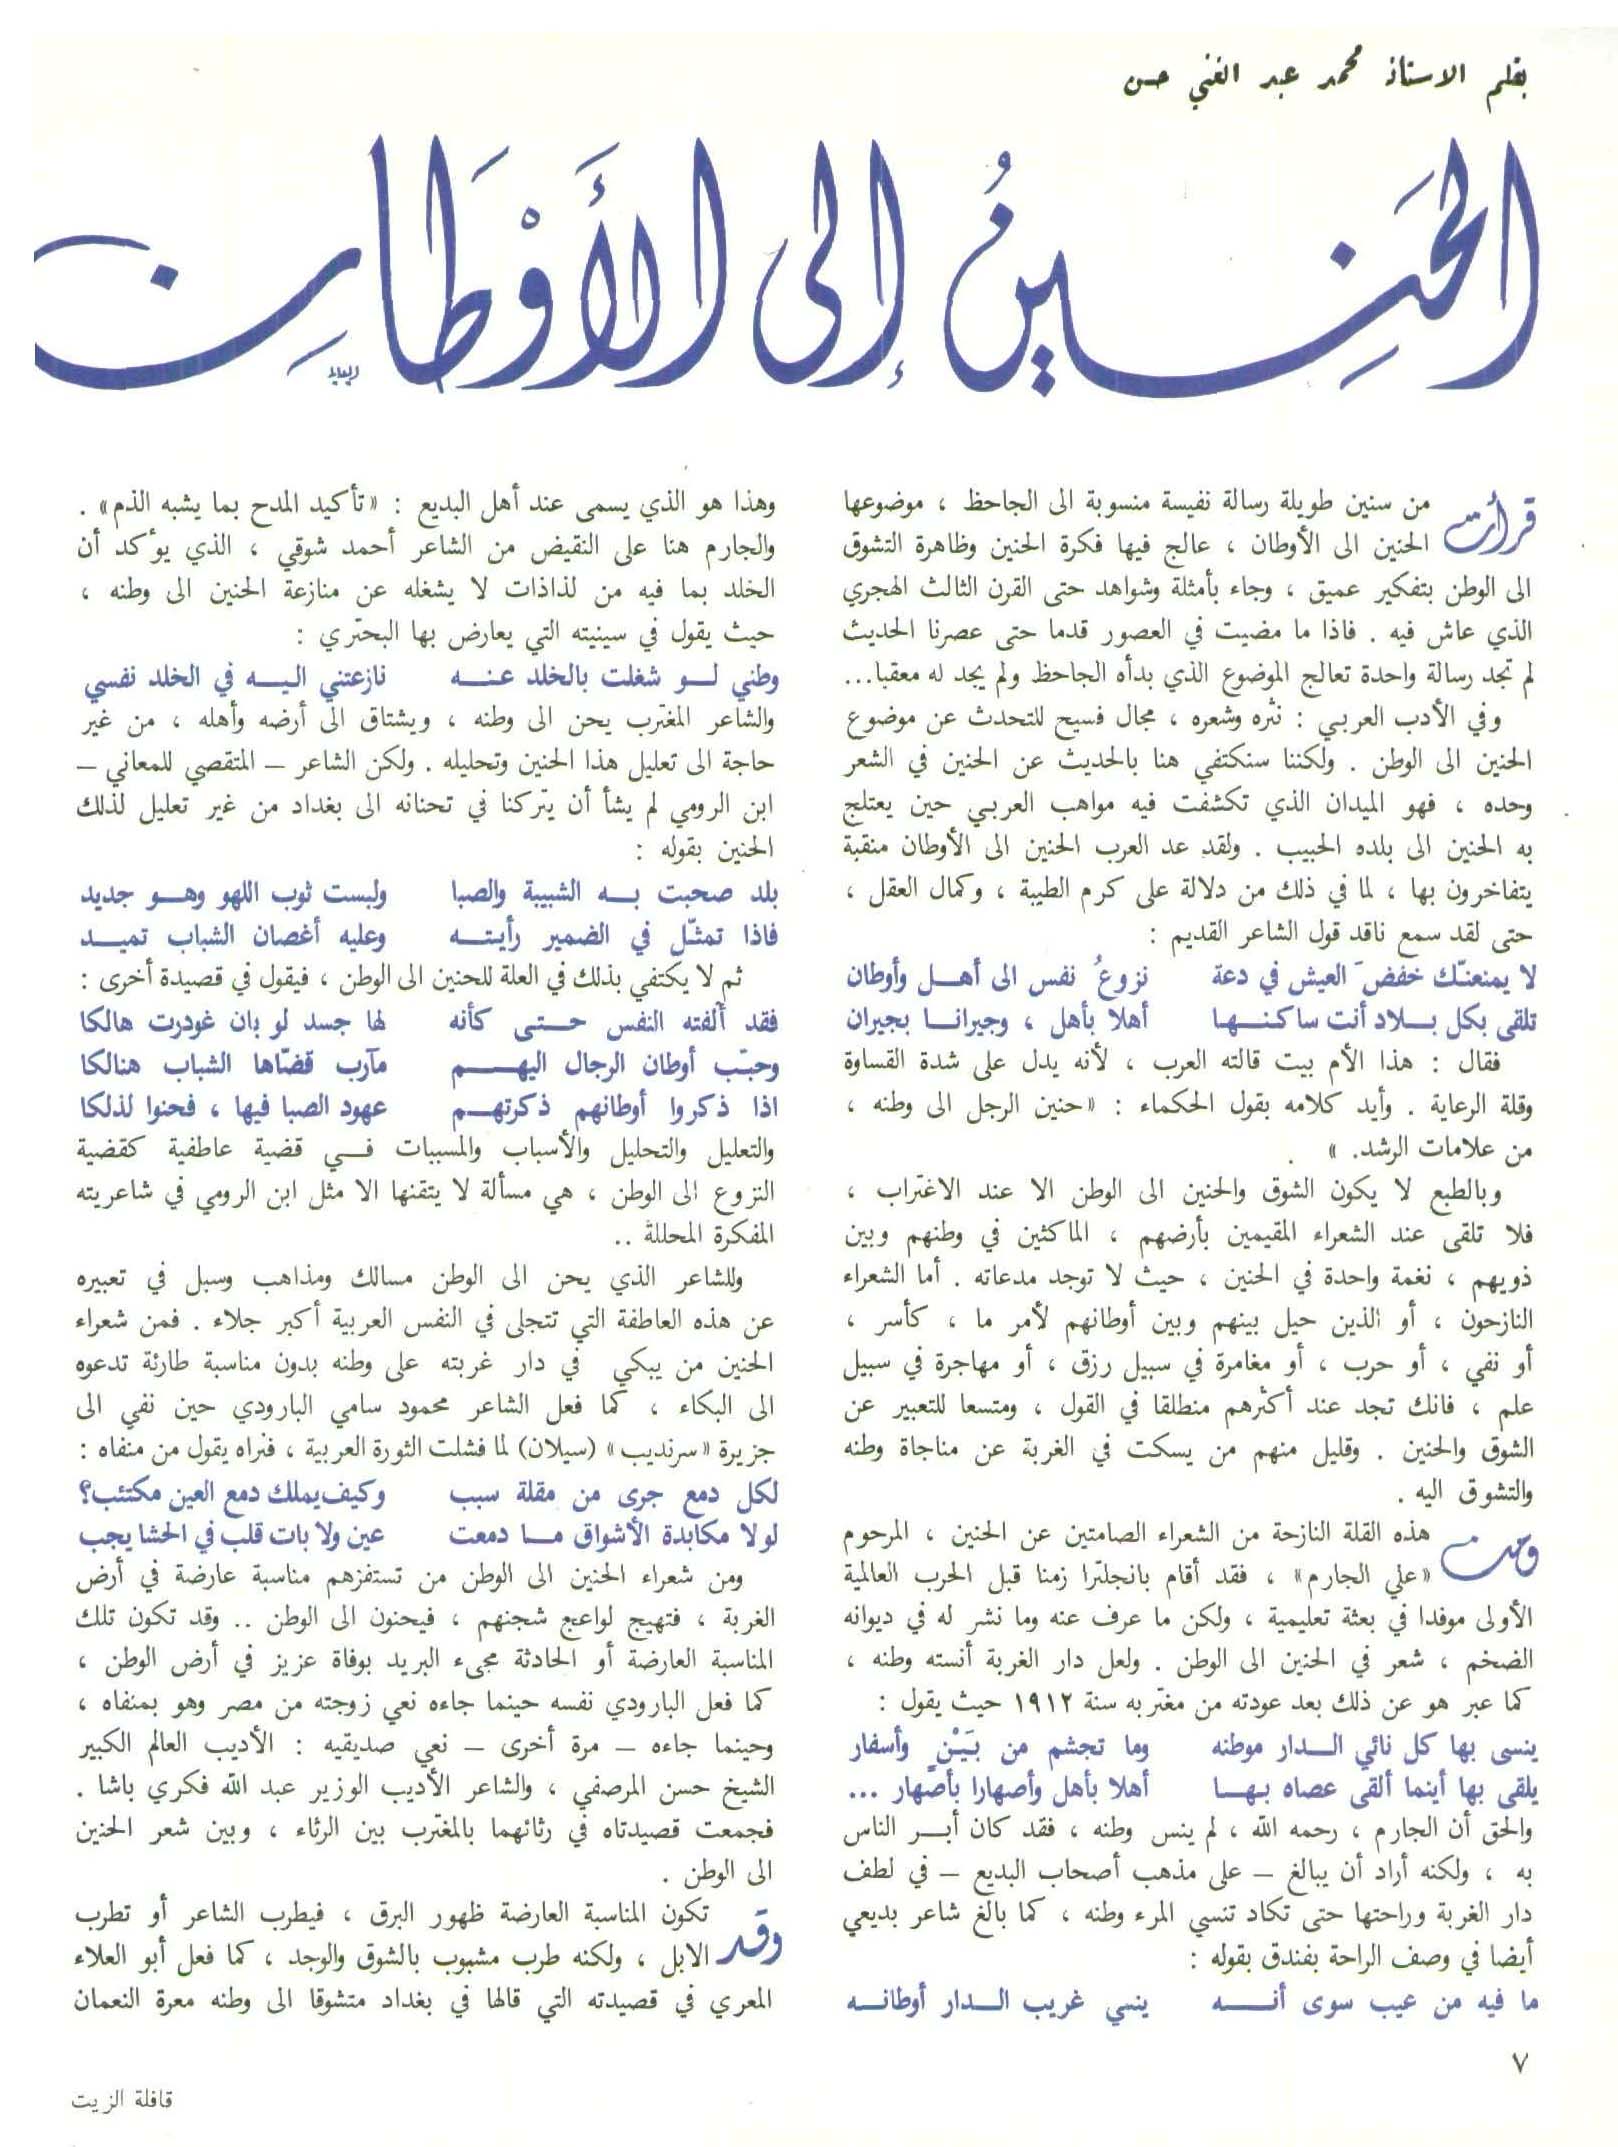 بقلم الاستاذ محمد عبد الغني حسن
الحَنِينُ إلى الأَوْطَانِ
قرأت من سنين طويلة رسالة نفيسة منسوبة الى الجاحظ ، موضوعها
الحنين الى الأوطان ، عالج فيها فكرة الحنين وظاهرة التشوق
الى الوطن بتفكير عميق ، وجاء بأمثلة وشواهد حتى القرن الثالث الهجري
الذي عاش فيه . فاذا ما مضيت في العصور قدما حتى عصرنا الحديث
لم تجد رسالة واحدة تعالج الموضوع الذي بدأه الجاحظ ولم يجد له معقبا...
وفي الأدب العربي : نثره وشعره ، مجال فسيح للتحدث عن موضوع
الحنين الى الوطن . ولكننا سنكتفي هنا بالحديث عن الحنين في الشعر
وحده ، فهو الميدان الذي تكشفت فيه مواهب العربي حين يعتلج
به الحنين الى بلده الحبيب . ولقد عد العرب الحنين الى الأوطان منقبة
يتفاخرون بها ، لما في ذلك من دلالة على كرم الطيبة ، وكمال العقل ،
حتى لقد سمع ناقد قول الشاعر القديم :
لا يمنعنّك خفضَ العيش في دعة نزوعُ نفس الى أهل وأوطان
تلقى بكل بلاد أنت ساكنها أهلا بأهل ، وجيرانا بجيران
فقال : هذا الأم بيت قالته العرب ، لأنه يدل على شدة القساوة
وقلة الرعاية . وأيد كلامه بقول الحكماء : «حنين الرجل الى وطنه ،
من علامات الرشد. »
وبالطبع لا يكون الشوق والحنين الى الوطن الا عند الاغتراب ،
فلا تلقى عند الشعراء المقيمين بأرضهم ، الماكثين في وطنهم وبين
ذويهم ، نغمة واحدة في الحنين ، حيث لا توجد مدعاته . أما الشعراء
النازحون ، أو الذين حيل بينهم وبين أوطانهم لأمر ما ، كأسر ،
أو نفي ، أو حرب ، أو مغامرة في سبيل رزق ، أو مهاجرة في سبيل
علم ، فانك تجد عند أكثرهم منطلقا في القول ، ومتسعا للتعبير عن
الشوق والحنين . وقليل منهم من يسكت في الغربة عن مناجاة وطنه
والتشوق اليه .
ومن هذه القلة النازحة من الشعراء الصامتين عن الحنين ، المرحوم
«علي الجارم» ، فقد أقام بانجلترا زمنا قبل الحرب العالمية
الأولى موفدا في بعثة تعليمية ، ولكن ما عرف عنه وما نشر له في ديوانه
الضخم ، شعر في الحنين الى الوطن . ولعل دار الغربة أنسته وطنه ،
كما عبر هو عن ذلك بعد عودته من مغتربه سنة ١٩١٢ حيث يقول :
ينسى بها كل نائي الدار موطنه وما تجشم من بَيْنٍ وأسفار
يلقى بها أينما ألقى عصاه بها أهلا بأهل وأصهارا بأصهار ...
والحق أن الجارم ، رحمه الله ، لم ينس وطنه ، فقد كان أبر الناس
به ، ولكنه أراد أن يبالغ – على مذهب أصحاب البديع – في لطف
دار الغربة وراحتها حتى تكاد تنسي المرء وطنه ، كما بالغ شاعر بديعي
أيضا في وصف الراحة بفندق بقوله :
ما فيه من عيب سوى أنه ينسي غريب الدار أوطانه
وهذا هو الذي يسمى عند أهل البديع : «تأكيد المدح بما يشبه الذم» .
والجارم هنا على النقيض من الشاعر أحمد شوقي ، الذي يؤكد أن
الخلد بما فيه من لذاذات لا يشغله عن منازعة الحنين الى وطنه ،
حيث يقول في سينيته التي يعارض بها البحتري :
وطني لو شغلت بالخلد عنه نازعتني اليه في الخلد نفسي
والشاعر المغترب يحن الى وطنه ، ويشتاق الى أرضه وأهله ، من غير
حاجة الى تعليل هذا الحنين وتحليله . ولكن الشاعر – المتقصي للمعاني –
ابن الرومي لم يشأ أن يتركنا في تحنانه الى بغداد من غير تعليل لذلك
الحنين بقوله :
بلد صحبت به الشبيبة والصبا ولبست ثوب اللهو وهو جديد
فاذا تمثّل في الضمير رأيته وعليه أغصان الشباب تميد
ثم لا يكتفي بذلك في العلة للحنين الى الوطن ، فيقول في قصيدة أخرى :
فقد ألفته النفس حتى كأنه لها جسد لو بان غودرت هالكا
وحبّب أوطان الرجال اليهم مآرب قضّاها الشباب هنالكا
اذا ذكروا أوطانهم ذكرتهم عهود الصبا فيها ، فحنوا لذلكا
والتعليل والتحليل والأسباب والمسببات في قضية عاطفية كقضية
النزوع الى الوطن ، هي مسألة لا يتقنها الا مثل ابن الرومي في شاعريته
المفكرة المحللة ..
وللشاعر الذي يحن الى الوطن مسالك ومذاهب وسبل في تعبيره
عن هذه العاطفة التي تتجلى في النفس العربية أكبر جلاء . فمن شعراء
الحنين من يبكي في دار غربته على وطنه بدون مناسبة طارئة تدعوه
الى البكاء ، كما فعل الشاعر محمود سامي البارودي حين نفي الى
جزيرة «سرنديب» (سيلان) لما فشلت الثورة العربية ، فنراه يقول من منفاه :
لكل دمع جرى من مقلة سبب وكيف يملك دمع العين مكتئب؟
لولا مكابدة الأشواق ما دمعت عين ولا بات قلب في الحشا يجب
ومن شعراء الحنين الى الوطن من تستفزهم مناسبة عارضة في أرض
الغربة ، فتهيج لواعج شجنهم ، فيحنون الى الوطن .. وقد تكون تلك
المناسبة العارضة أو الحادثة مجيء البريد بوفاة عزيز في أرض الوطن ،
كما فعل البارودي نفسه حينما جاءه نعي زوجته من مصر وهو بمنفاه ،
وحينما جاءه – مرة أخرى – نعي صديقيه : الأديب العالم الكبير
الشيخ حسن المرصفي ، والشاعر الأديب الوزير عبد الله فكري باشا .
فجمعت قصيدتاه في رثائهما بالمغترب بين الرثاء ، وبين شعر الحنين
الى الوطن .
وقد تكون المناسبة العارضة ظهور البرق ، فيطرب الشاعر أو تطرب
الابل ، ولكنه طرب مشبوب بالشوق والوجد ، كما فعل أبو العلاء
المعري في قصيدته التي قالها في بغداد متشوقا الى وطنه معرة النعمان
٧
قافلة الزيت